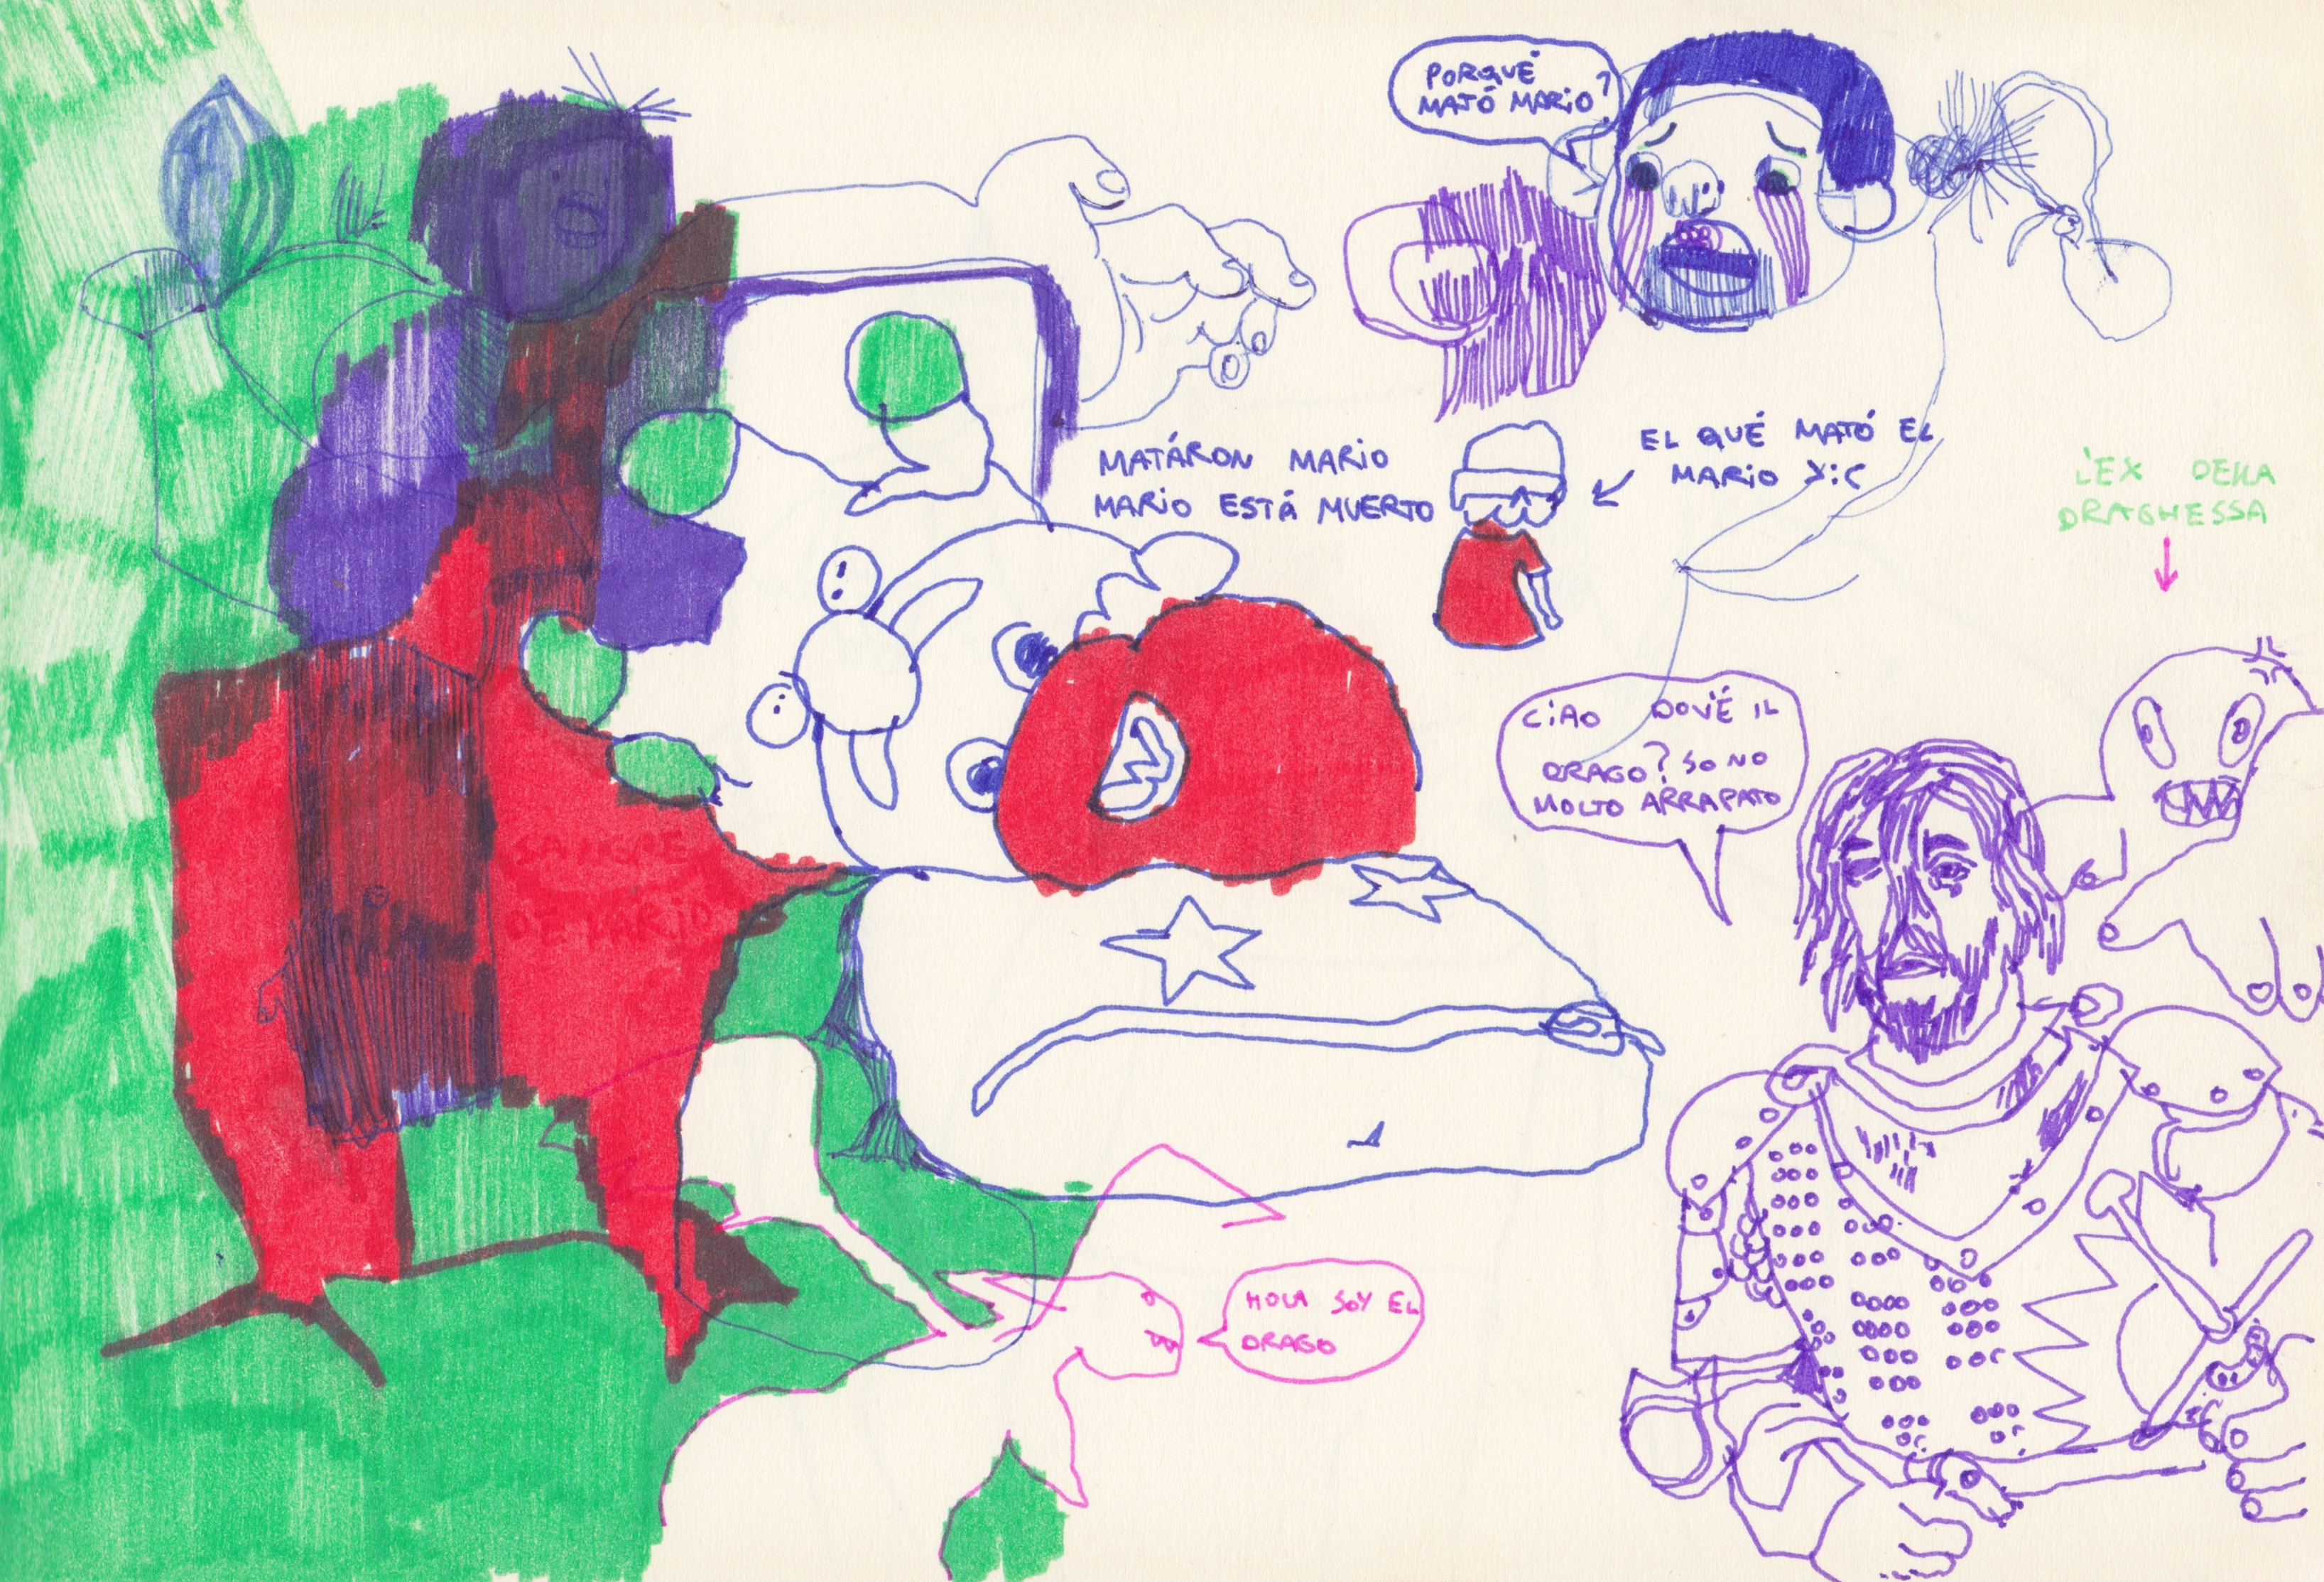 PORQUÉ
MATÓ MARIO?
MATÁRON MARIO
MARIO ESTÁ MUERTO
EL QUÉ MATÓ EL
MARIO >:C
L'EX DELLA
DRAGHESSA
CIAO DOV'È IL
DRAGO? SONO
MOLTO ARRAPATO
SANGRE
DE MARIO
HOLA SOY EL
DRAGO